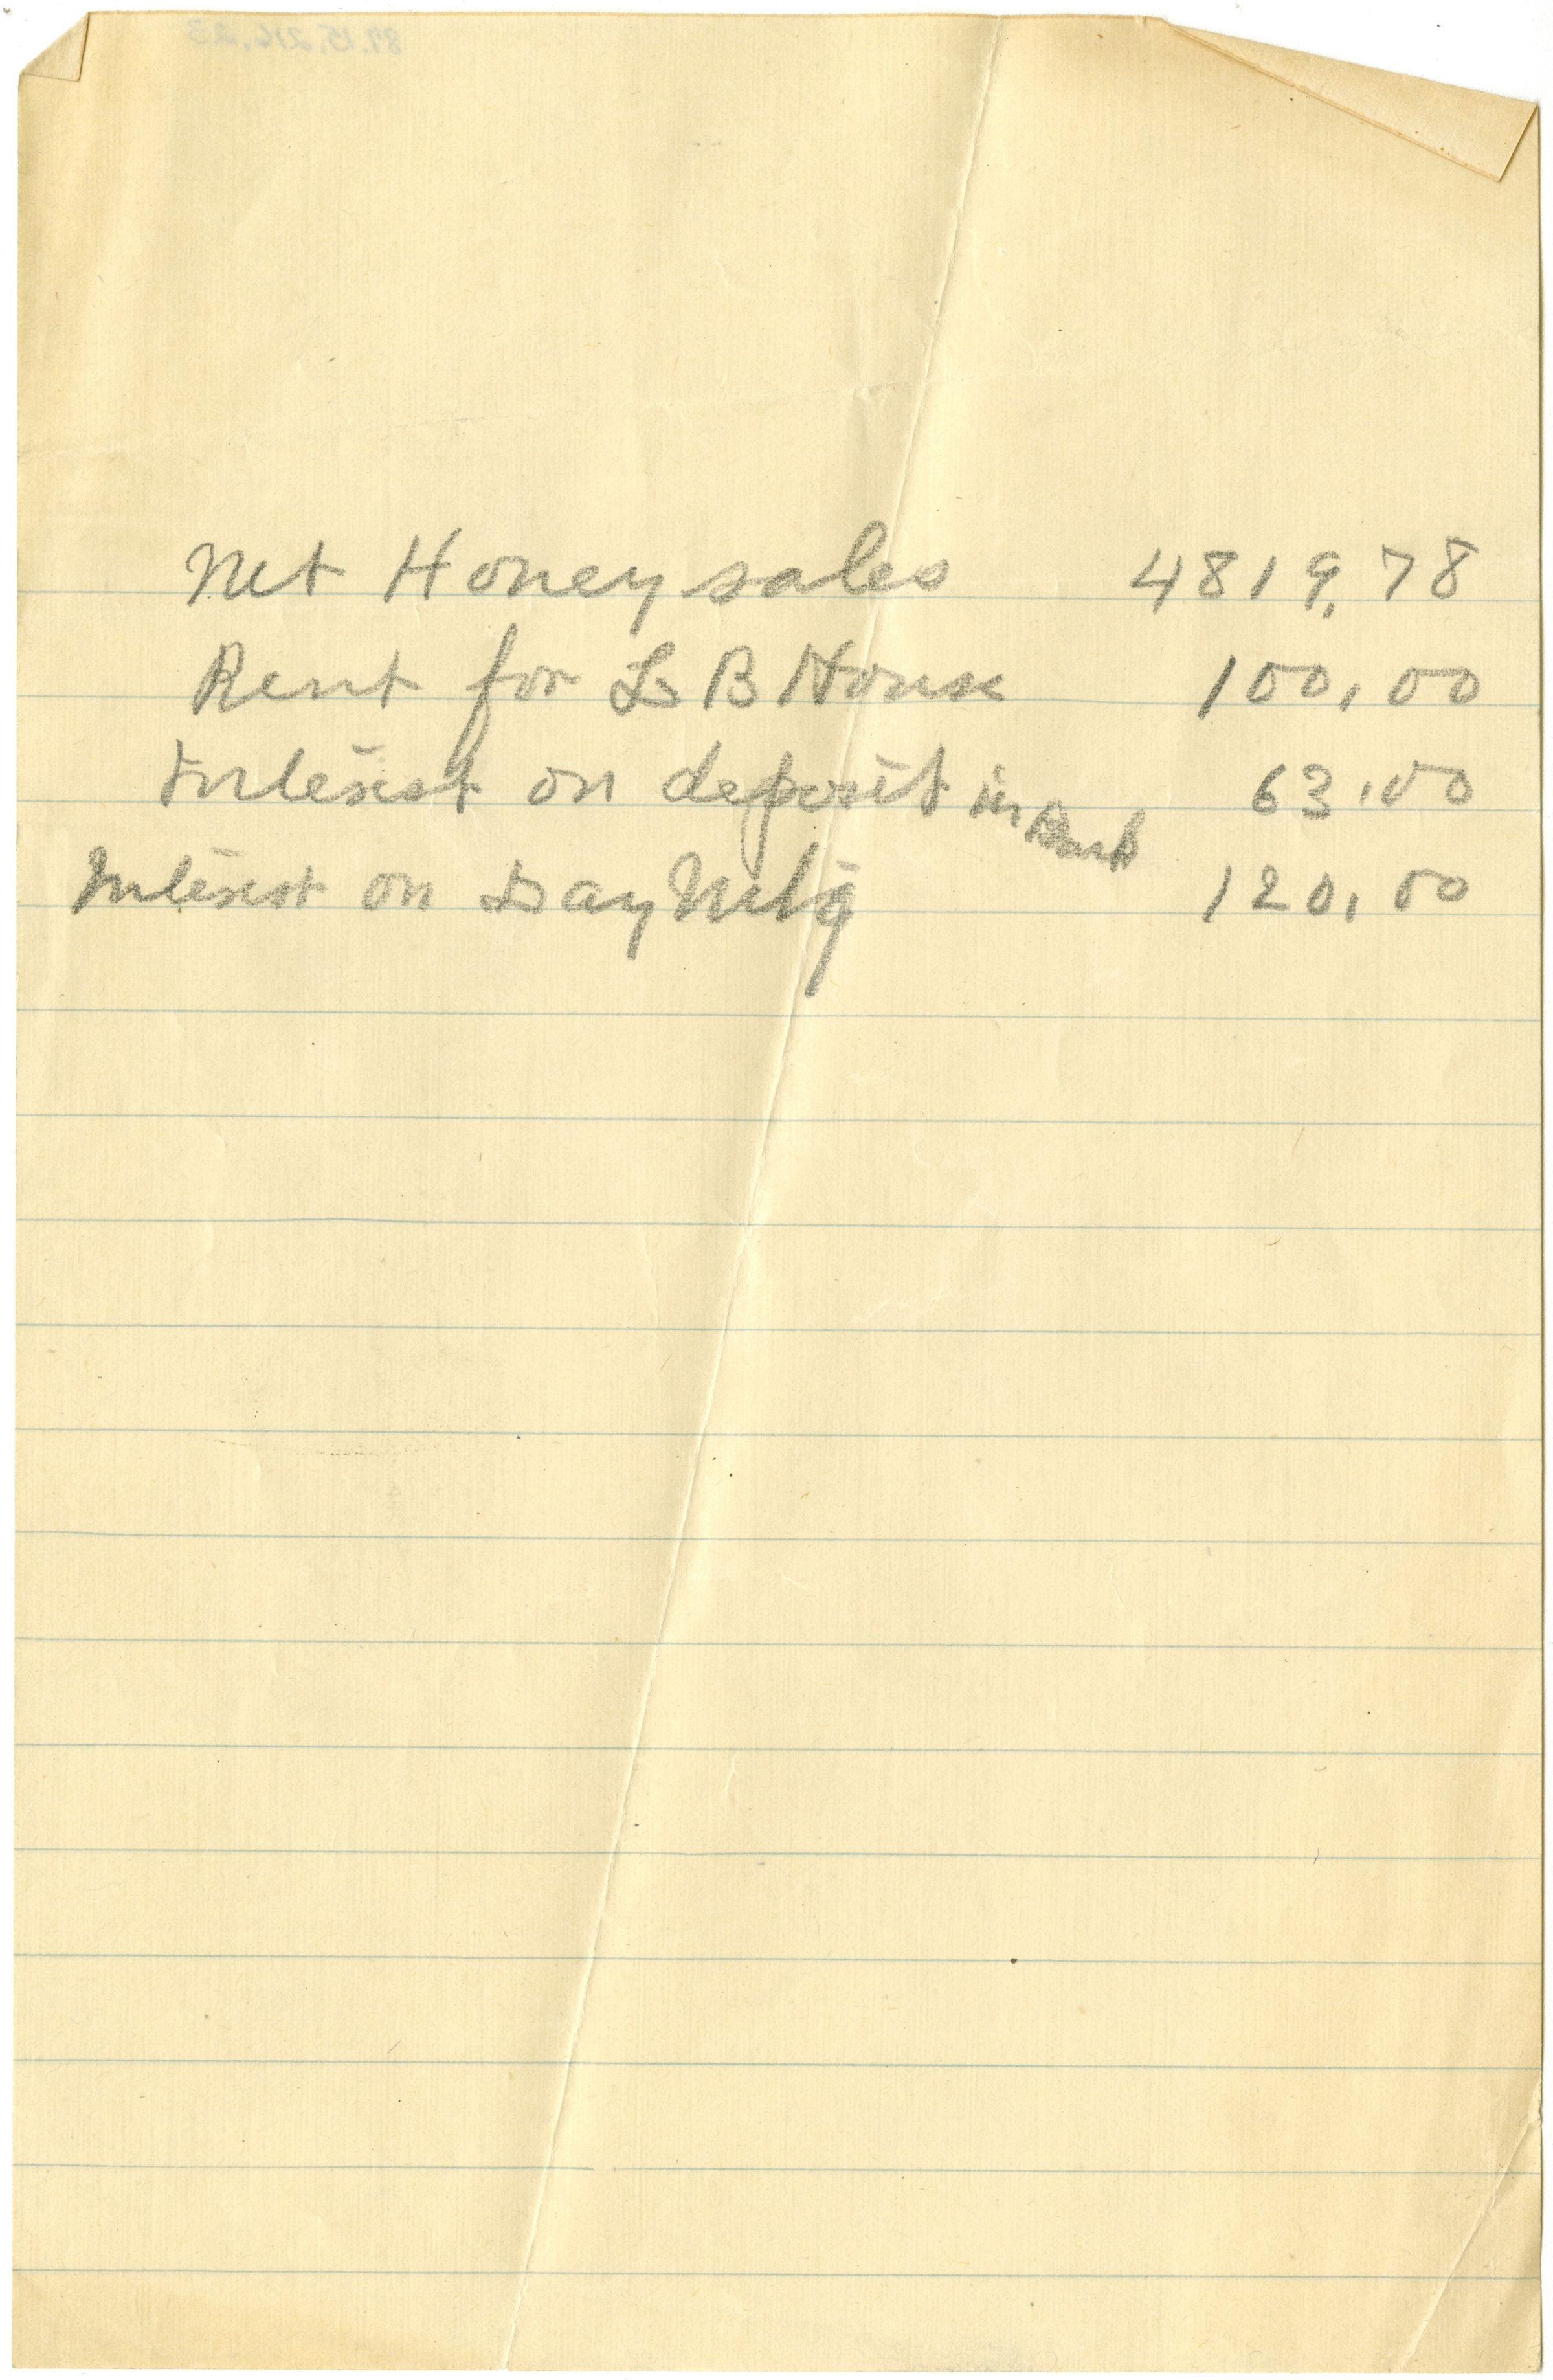 Net Honey sales 4819.78
Rent for L B House 100.00
Interest on deposit in Bank 63.00
Interest on Day Mtg 120.00